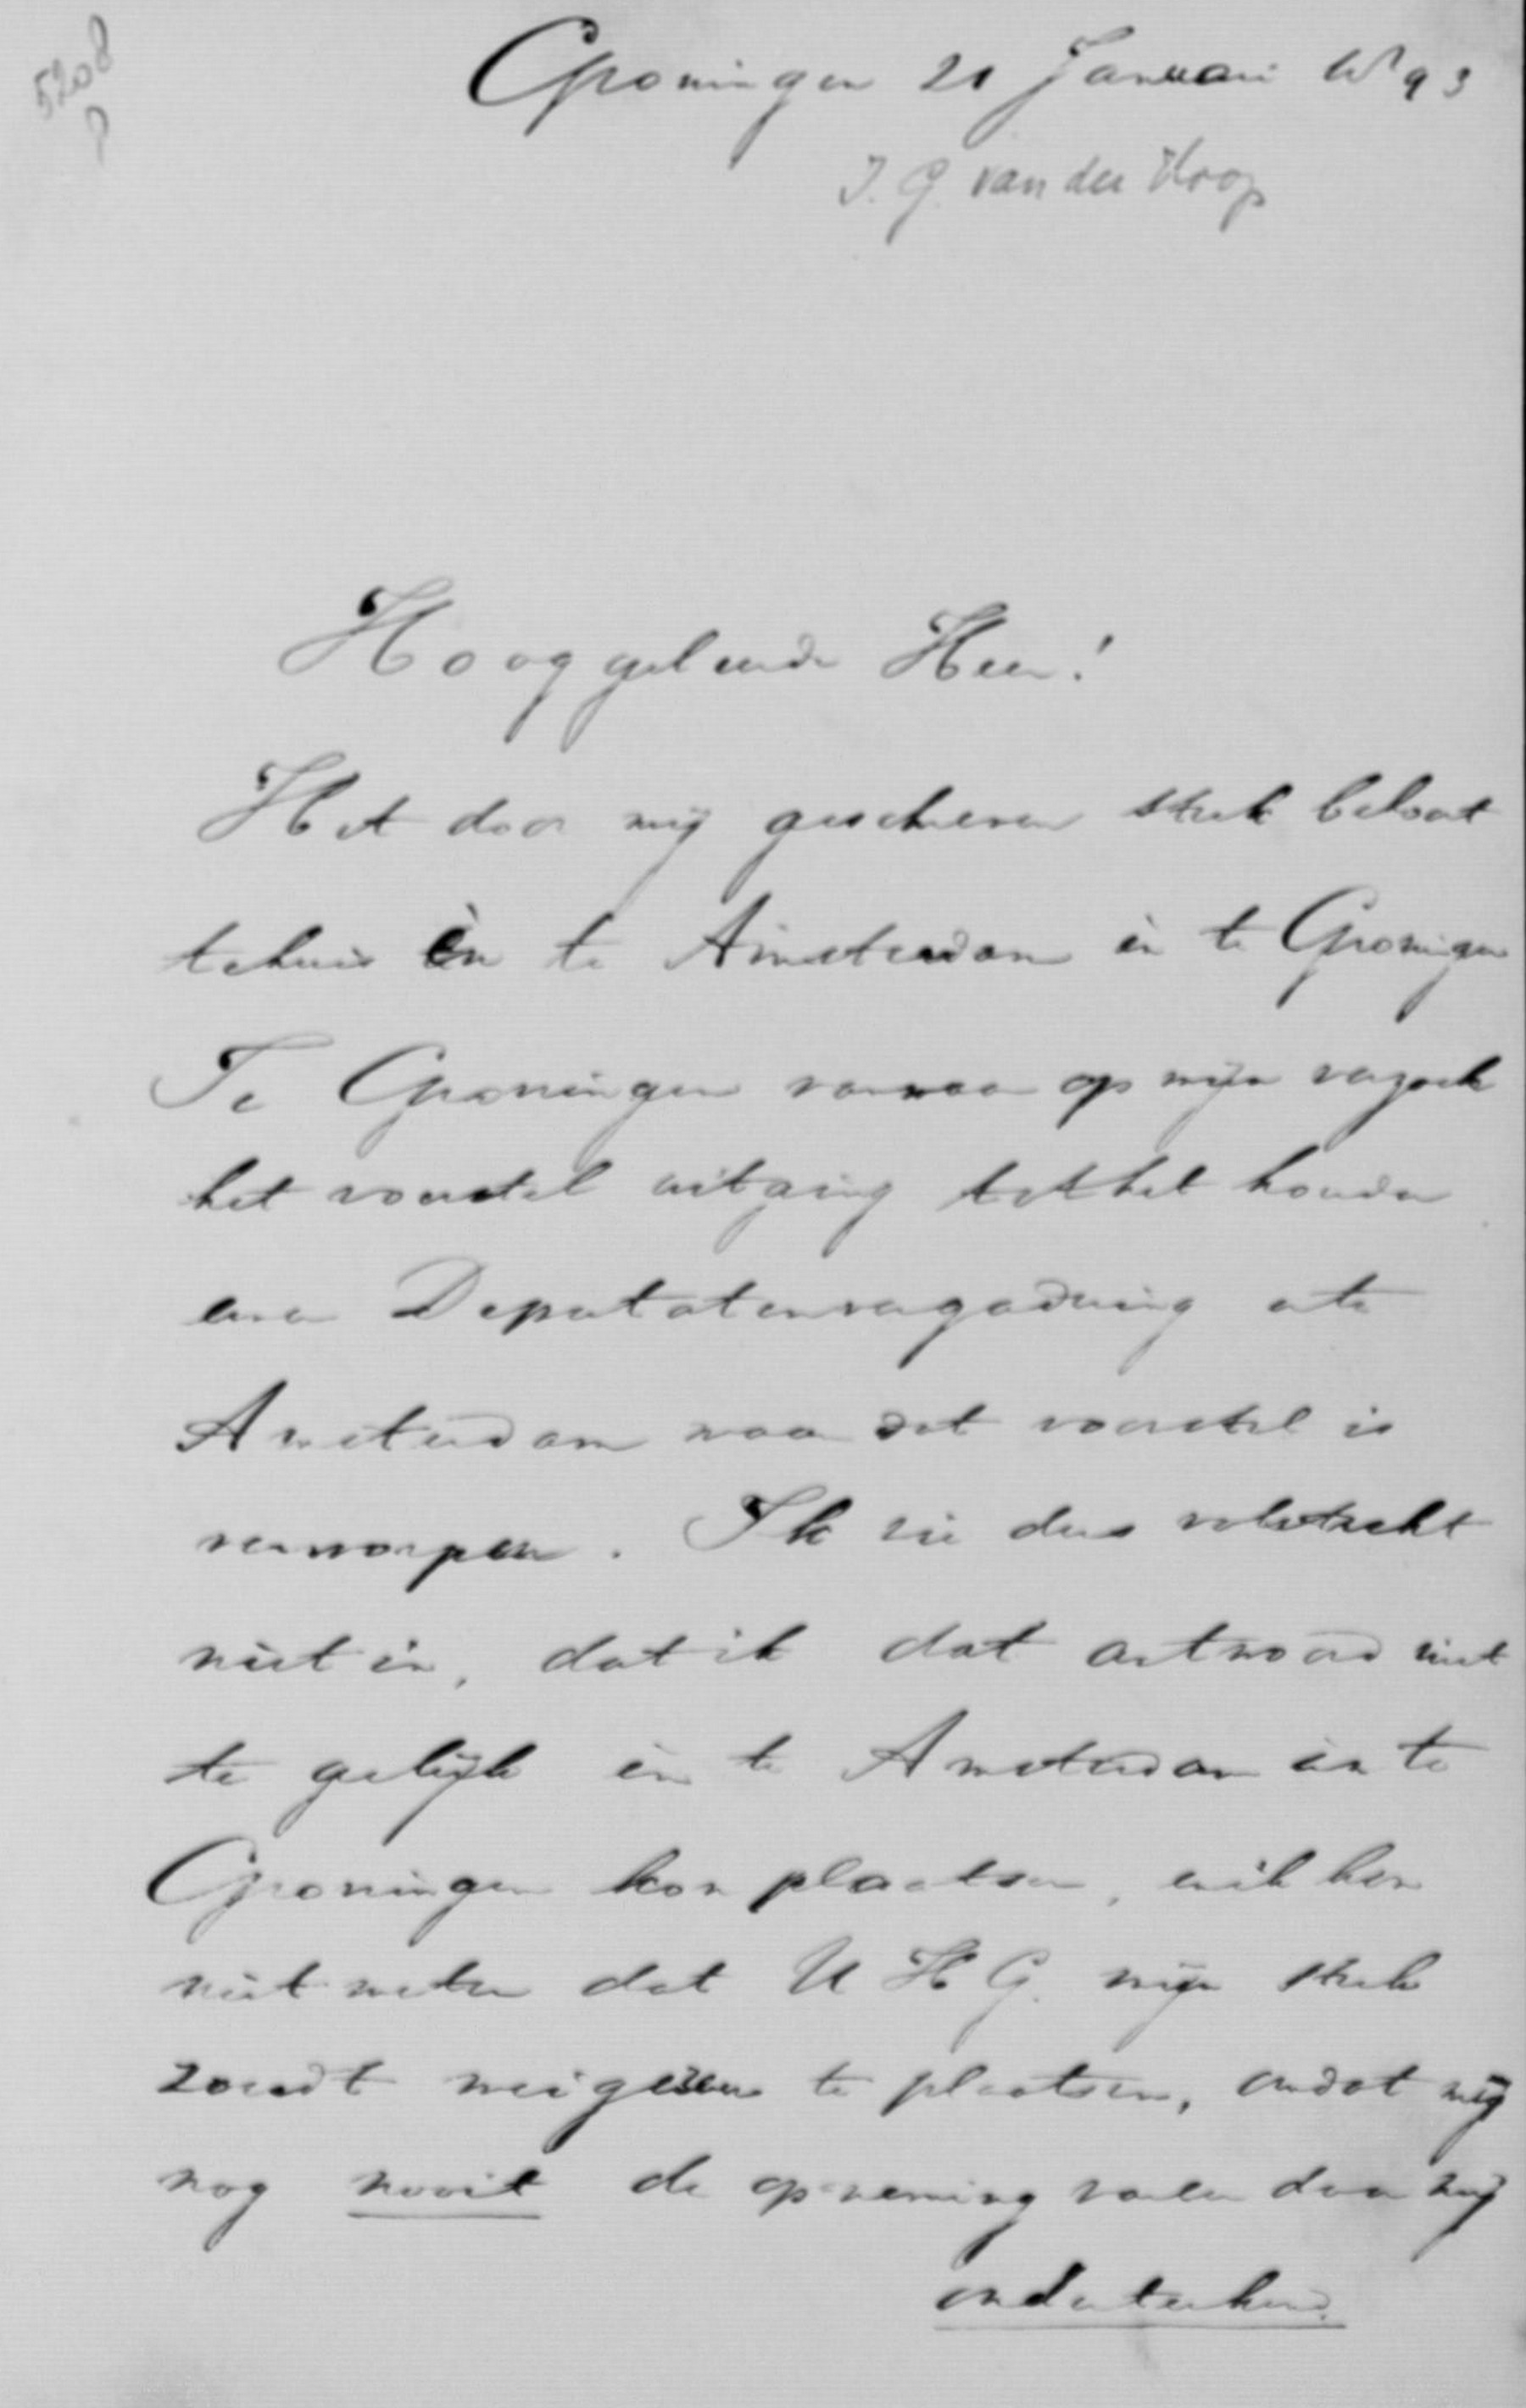 5208
P
Groningen 21 Januari 1893
J. G. van der Hoop
Hooggeleerde Heer!
Het door mij geschreven stuk behoort
tehuis èn te Amsterdam èn te Groningen
Te Groningen vanwaar op mijn verzoek
het voorstel uitging tot het houden
eener Deputatenvergadering
Amsterdam waar dat voorstel is
verworpen. Ik zie dus volstrekt
niet in, dat ik dat antwoord niet
te gelijk èn te Amsterdam èn te
Groningen kon plaatsen, en ik kon
niet weten dat U H G. mijn stuk
zoudt weigeren te plaatsen, omdat mij
nog nooit de opneming van door mij
onderteekend